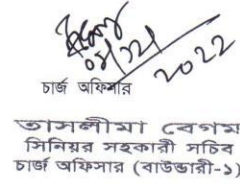 ২০২২
চার্জ অফিসার
তাসলীমা বেগম
সিনিয়র সহকারী সচিব
চার্জ অফিসার (বাউন্ডারী-১)